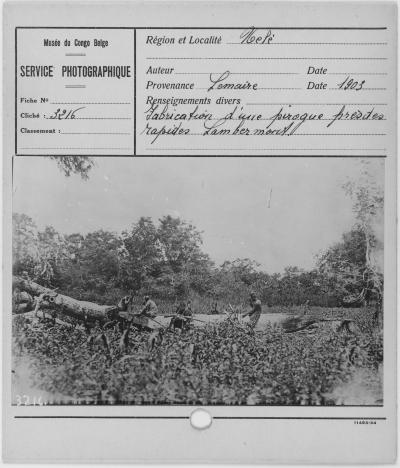 Musée du Congo Belge
SERVICE PHOTOGRAPHIQUE
Fiche No
Cliché : 3216
Classement :
Région et Localité Uelé
Auteur Date
Provenance Lemaire Date 1903
Renseignements divers
Fabrication d'une pirogue près des
rapides Lambermont.
3216